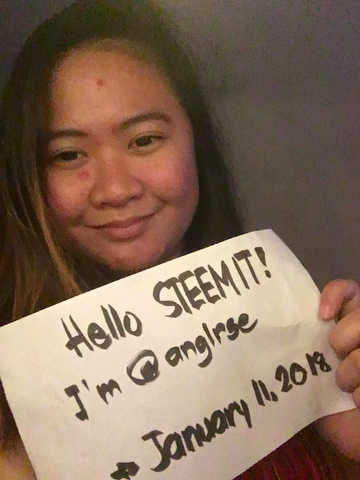 Hello STEEMIT!
I'm @anglrse
January 11, 2018